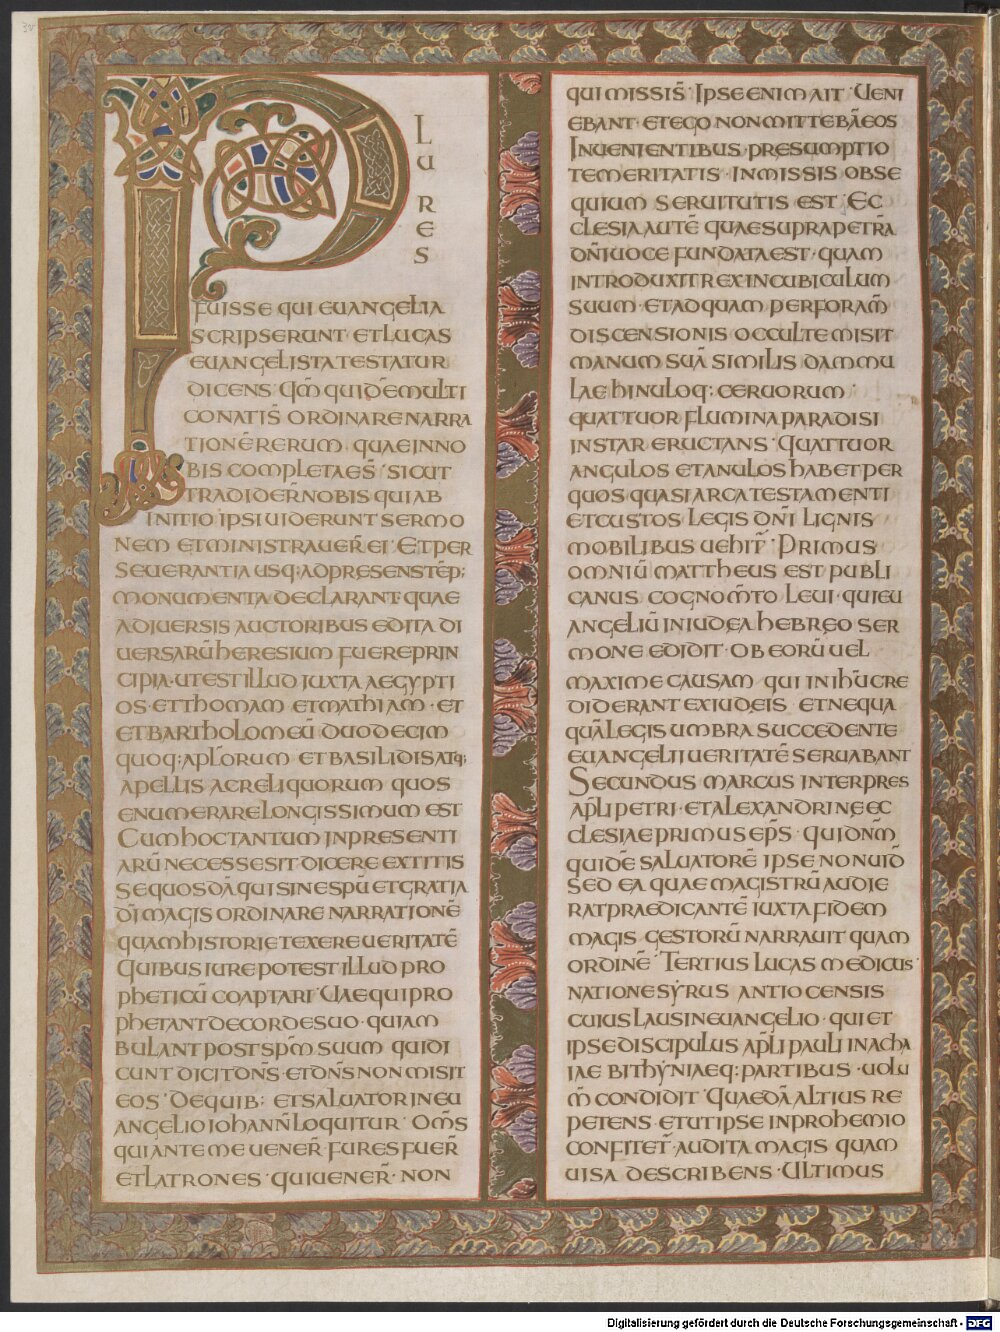 PLURES
FUISSE QUI EUANGELIA
SCRIPSERUNT ET LUCAS
EUANGELISTA TESTATUR
DICENS· QM̄ QUIDĒ MULTI
CONATI S̄ ORDINARE NARRA
TIONĒ RERUM· QUAE INNO
BIS COMPLETAE S̄· SICUT
TRADIDER̄ NOBIS QUI AB
INITIO IPSI UIDERUNT SERMO
NEM ET MINISTRAUER̄ EI· ET PER
SEUERANTIA USQ; AD PRESENS TĒP;
MONUMENTA DECLARANT· QUAE
A DIUERSIS AUCTORIBUS EDITA DI
UERSARŪ HERESIUM FUERE PRIN
CIPIA· UT EST ILLUD IUXTA AEGYPTI
OS· ET THOMAM ET MATHIAM· ET
ET BARTHOLOMEŪ DUODECIM
QUOQ; APL̄ORUM ET BASILIDIS ATQ;
APELLIS AC RELIQUORUM QUOS
ENUMERARE LONGISSIMUM EST
CUM HOC TANTUM IN PRESENTI
ARŪ NECESSE SIT DICERE EXTITIS
SE QUOSDĀ QUI SINE SPŪ ET GRATIA
DĪ MAGIS ORDINARE NARRATIONĒ
QUAM HISTORIE TEXERE UERITATĒ
QUIBUS IURE POTEST ILLUD PRO
PHETICŪ COAPTARI· UAE QUI PRO
PHETANT DE CORDE SUO· QUI AM
BULANT POST SPM̄ SUUM QUI DI
CUNT DICIT DN̄S· ET DN̄S NON MISIT
EOS· DE QUIB; ET SALUATOR IN EU
ANGELIO IOHANN̄ LOQUITUR· OM̄S
QUI ANTE ME UENER̄· FURES FUER̄
ET LATRONES· QUI UENER̄· NON
QUI MISSI S̄· IPSE ENIM AIT· UENI
EBANT· ET EGO NON MITTEBĀ EOS
IN UENIENTIBUS· PRESUMPTIO
TEMERITATIS· IN MISSIS OBSE
QUIUM SERUITUTIS EST· EC
CLESIA AUTĒ QUAE SUPRA PETRĀ
DN̄I UOCE FUNDATA EST· QUAM
INTRODUXIT REX IN CUBICULUM
SUUM· ET AD QUAM PER FORAM̄
DISCENSIONIS OCCULTE MISIT
MANUM SUĀ SIMILIS DAMMU
LAE HINULOQ; CERUORUM·
QUATTUOR FLUMINA PARADISI
INSTAR ERUCTANS· QUATTUOR
ANGULOS ET ANULOS HABET PER
QUOS QUASI ARCA TESTAMENTI
ET CUSTOS LEGIS DN̄I LIGNIS
MOBILIBUS UEHIT̄· PRIMUS
OMNIŪ MATTHEUS EST PUBLI
CANUS COGNOM̄TO LEUI· QUI EU
ANGELIŪ IN IUDĘA HEBRĘO SER
MONE EDIDIT· OB EORŪ UEL
MAXIME CAUSAM QUI IN IHŪ CRE
DIDERANT EX IUDĘIS ET NEQUA
QUĀ LEGIS UMBRA SUCCEDENTE
EUANGELII UERITATĒ SERUABANT
SECUNDUS MARCUS INTERPRES
APL̄I PETRI· ET ALEXANDRINĘ EC
CLESIAE PRIMUS EP̄S· QUI DN̄M
QUIDĒ SALUATORĒ IPSE NON UID̄
SED EA QUAE MAGISTRŪ AUDIE
RAT PRAEDICANTĒ IUXTA FIDEM
MAGIS GESTORŪ NARRAUIT QUAM
ORDINĒ· TERTIUS LUCAS MEDICUS·
NATIONE SYRUS ANTIOCENSIS
CUIUS LAUS IN EUANGELIO· QUI ET
IPSE DISCIPULUS APL̄I PAULI IN ACHA
IAE BITHYNIAEQ; PARTIBUS· UOLU
M̄ CONDIDIT· QUAEDĀ ALTIUS RE
PETENS· ET UT IPSE IN PROHEMIO
CONFITET̄· AUDITA MAGIS QUAM
UISA DESCRIBENS· ULTIMUS
Digitalisierung gefördert durch die Deutsche Forschungsgemeinschaft - DFG